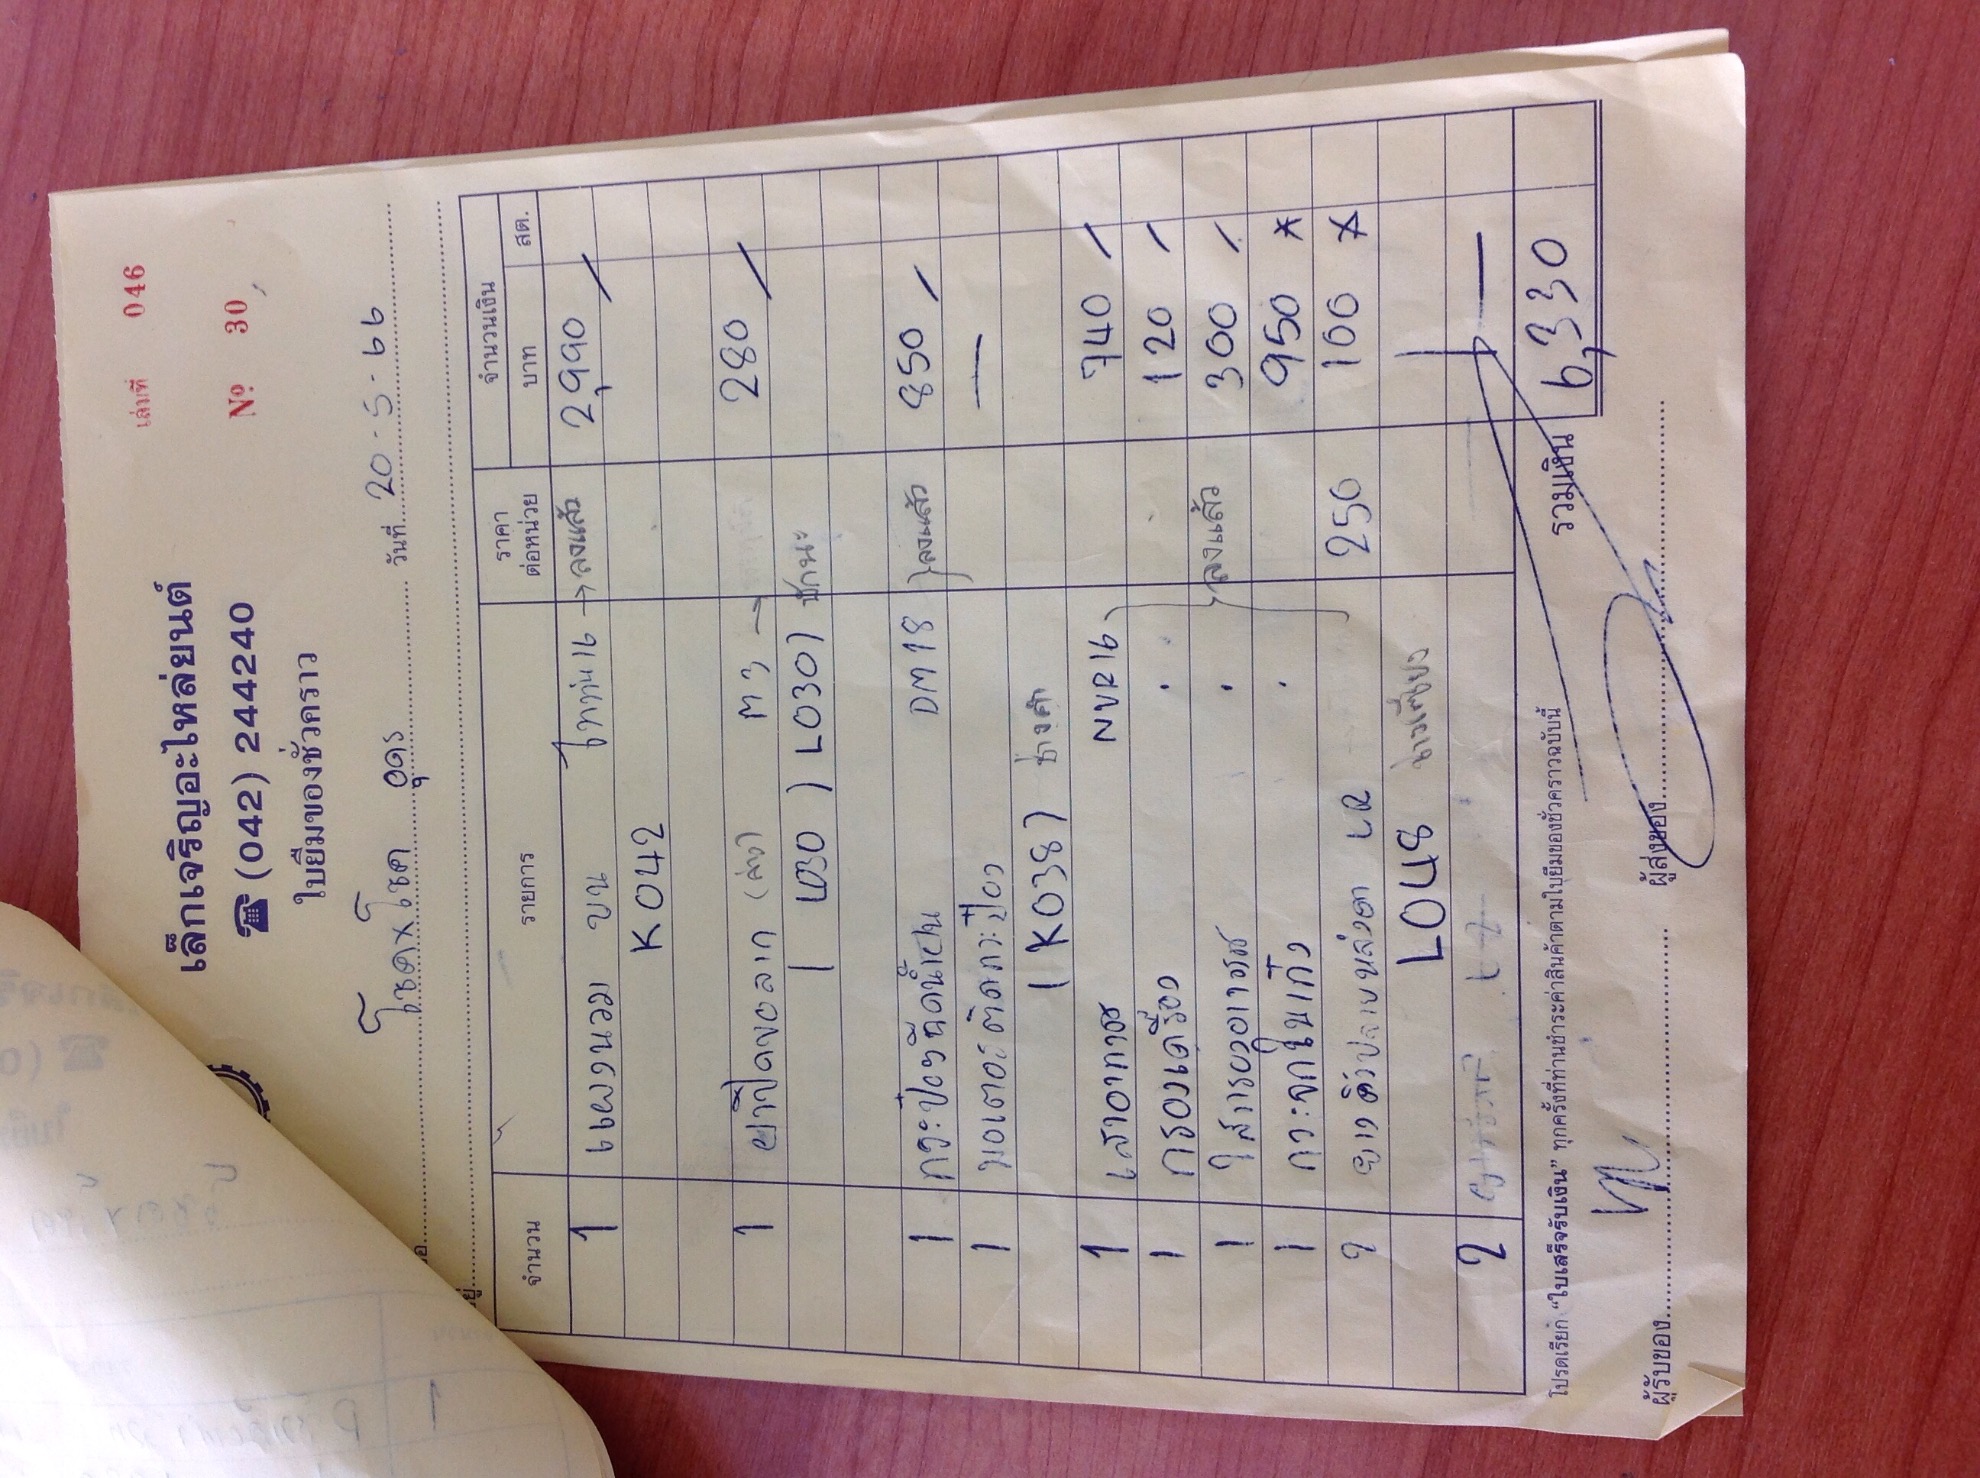 เล่มที่ 046
เล็กเจริญอะไหล่ยนต์
☎ (042) 244240
Nº 30
ใบยืมของชั่วคราว
โชคxโชค อุดร วันที่ 20-5-66
จำนวน รายการ ราคาต่อหน่วย จำนวนเงิน
บาท สต.
1 แผงนวม บน ไททัน 16 → ลงแล้ว 2,990
K042
1 M3 → 280
L030) ชัทนะ
1 กระป๋องฉีดน้ำฝน DM18 ลงแล้ว 850 /
1 มอเตอร์ติดกระป๋อง —
(K038) ช่างคำ
1 เสาอากาศ NVR16 740 /
1 กรองเครื่อง . 120 /
1 ไส้กรองอากาศ . ลงแล้ว 300 /
1 กระจกในเก๋ง . 950 *
2 ยางคิ้วปลายหลังคา LR 250 100 *
L048
2
รวมเงิน 6,330
โปรดเรียก "ใบเสร็จรับเงิน" ทุกครั้งที่ท่านชำระค่าสินค้าตามใบยืมของชั่วคราวฉบับนี้
ผู้รับของ ผู้ส่งของ